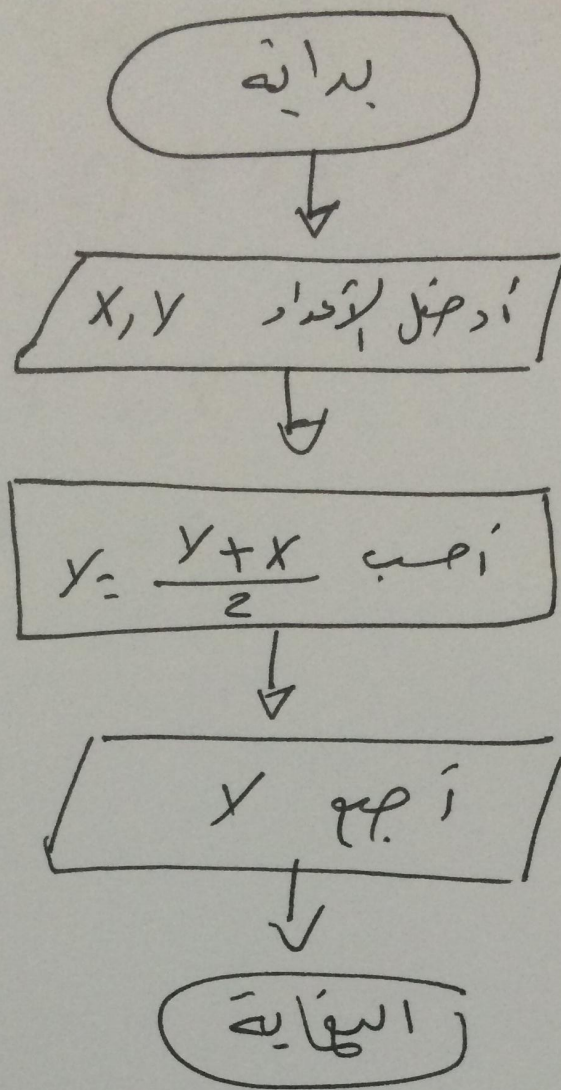 بداية
أدخل الأعداد X, Y
أحسب Y = (Y + X) / 2
أجمع Y
النهاية